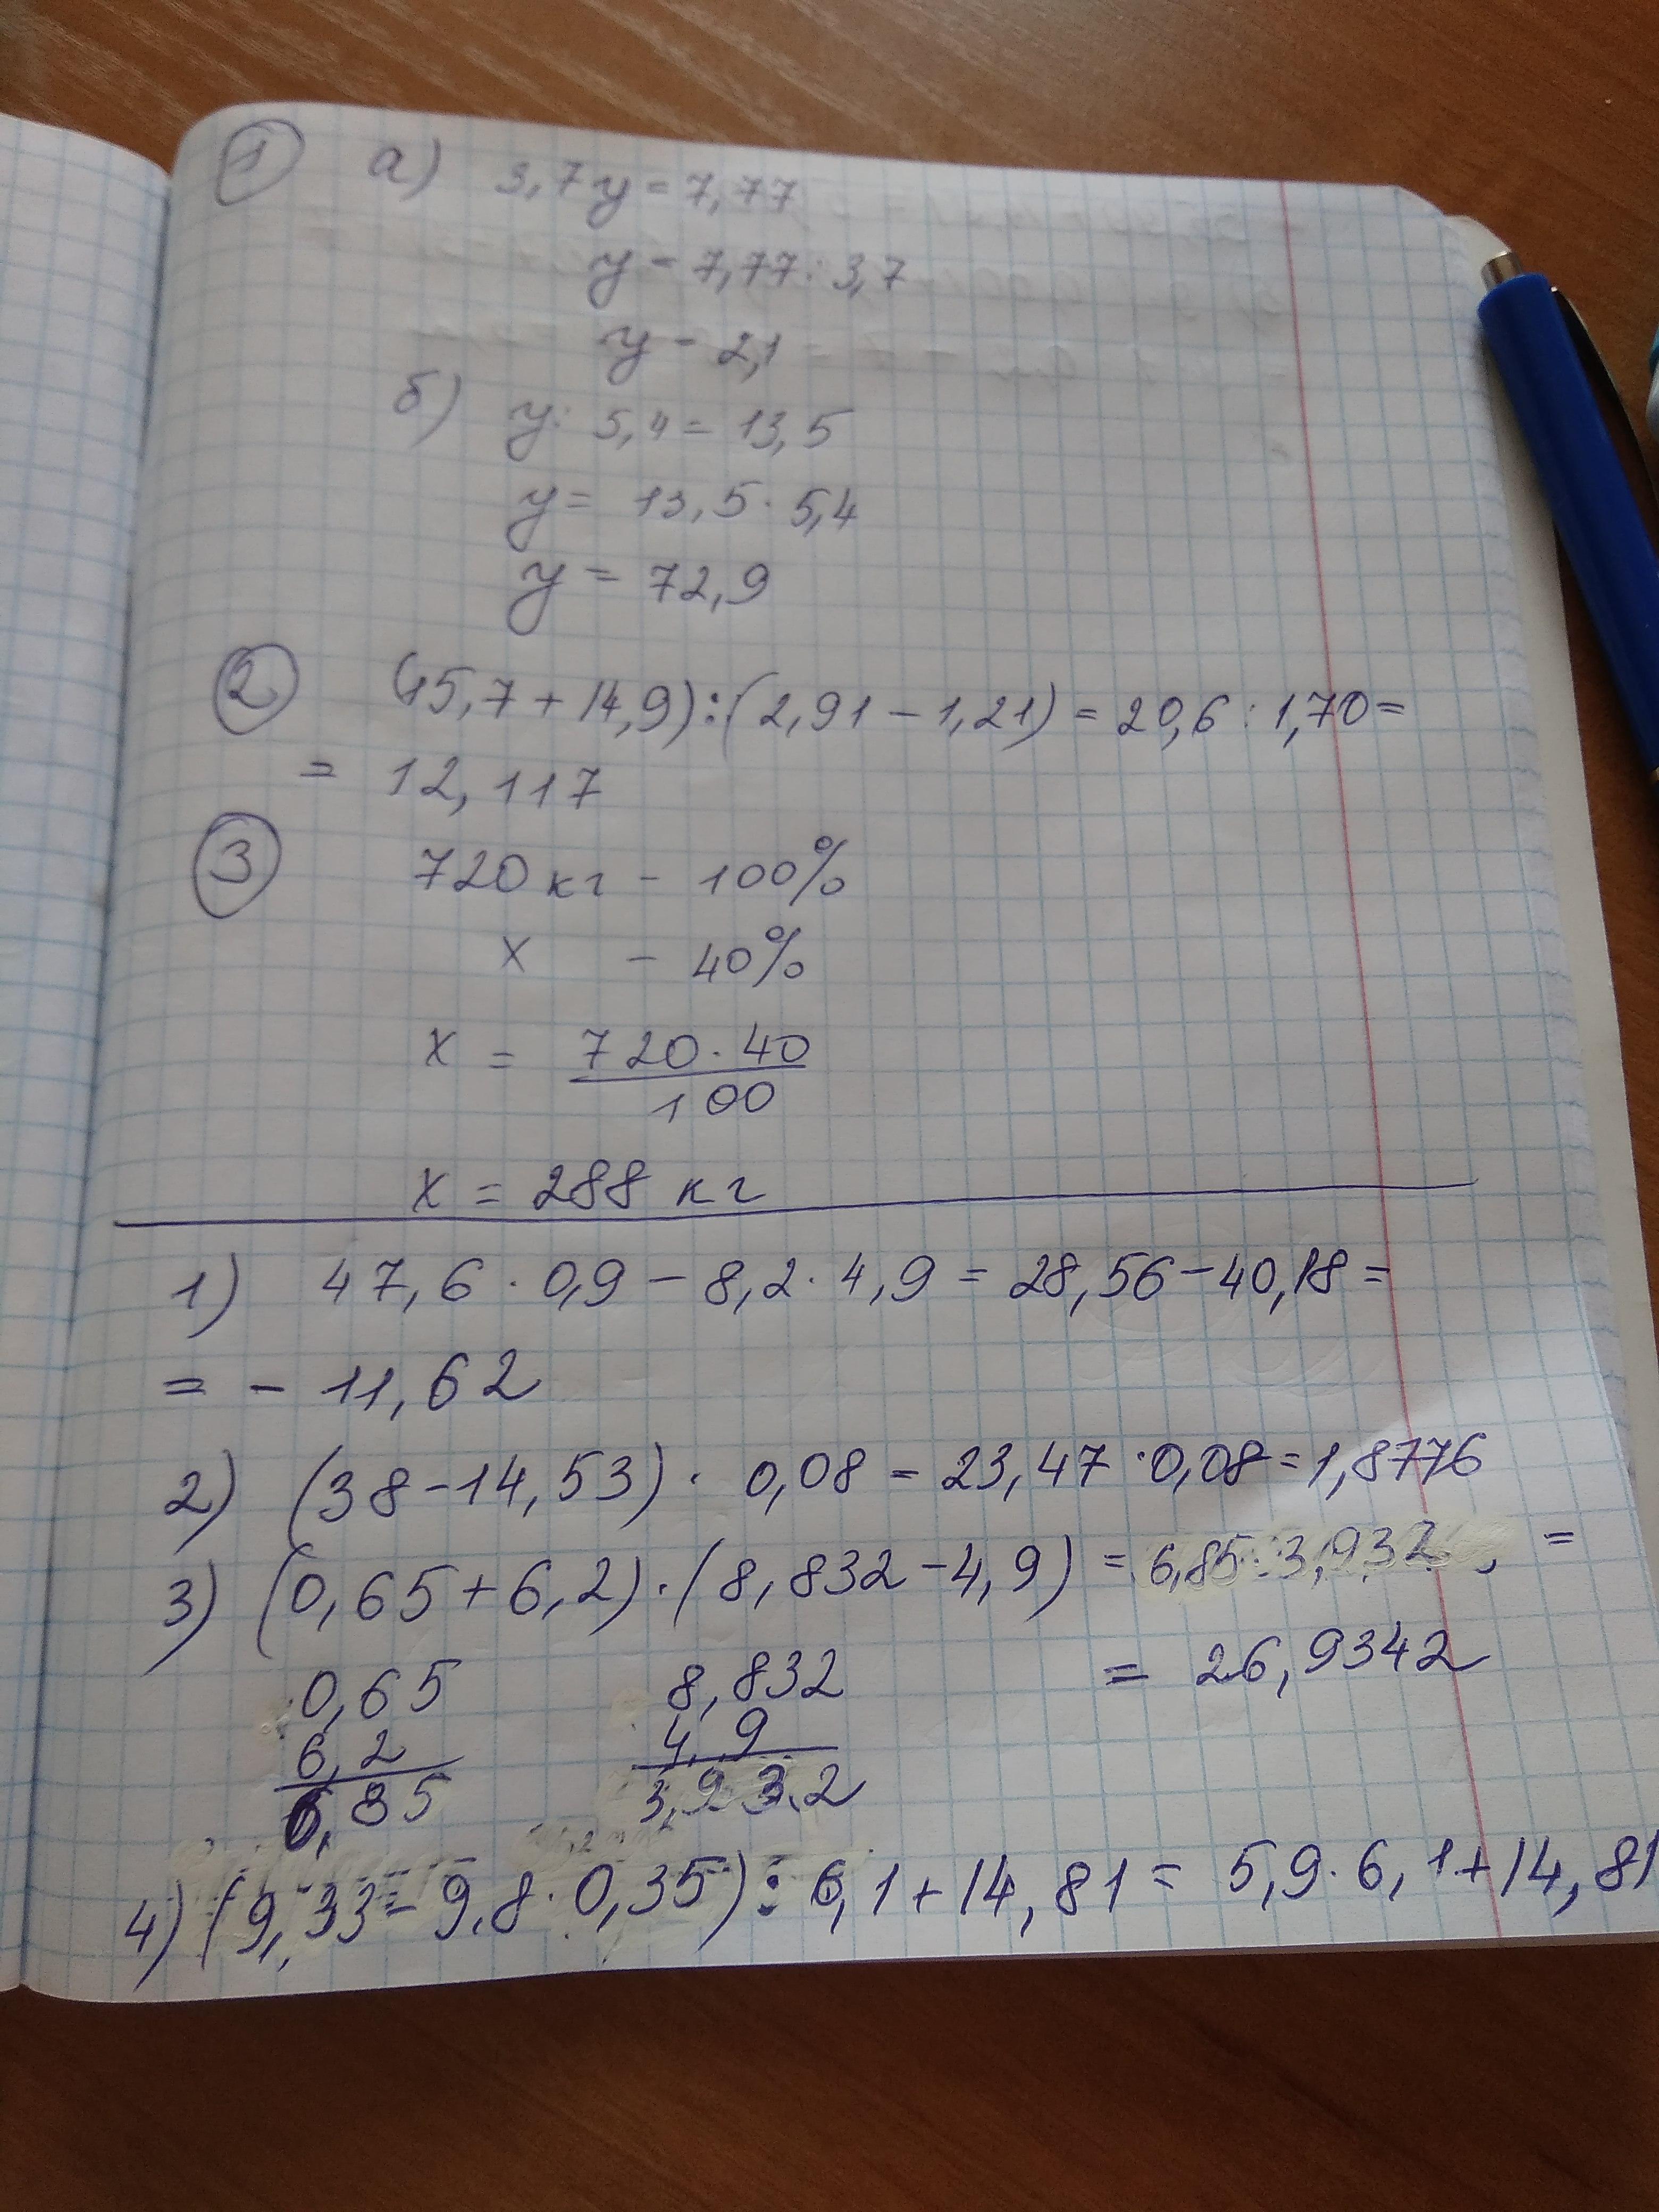 1 а) 3,7y = 7,77
y = 7,77 : 3,7
y - 2,1
б) y : 5,4 = 13,5
y = 13,5 · 5,4
y = 72,9
2 (15,7 + 14,9) : (2,91 - 1,21) = 20,6 : 1,70 =
= 12,117
3 720 кг - 100%
x - 40%
x = 720 · 40
100
x = 288 кг
1) 47,6 · 0,9 - 8,2 · 4,9 = 28,56 - 40,18 =
= - 11,62
2) (38 - 14,53) · 0,08 = 23,47 · 0,08 = 1,8776
3) (0,65 + 6,2) · (8,832 - 4,9) = 6,85 · 3,932 =
0,65 8,832 = 26,9342
6,2 4,9
6,85 3,932
4) (9,33 - 9,8 · 0,35) : 6,1 + 14,81 = 5,9 · 6,1 + 14,81